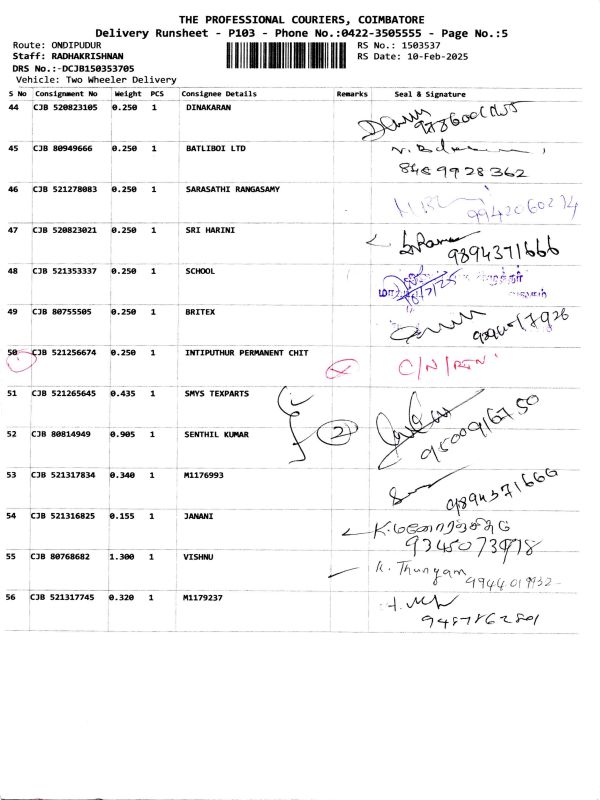 THE PROFESSIONAL COURIERS, COIMBATORE
Delivery Runsheet - P103 - Phone No.:0422-3505555 - Page No.:5
Route: ONDIPUDUR RS No.: 1503537
Staff: RADHAKRISHNAN RS Date: 10-Feb-2025
DRS No.:-DCJB150353705
Vehicle: Two Wheeler Delivery
S No Consignment No Weight PCS Consignee Details Remarks Seal & Signature
44 CJB 520823105 0.250 1 DINAKARAN
45 CJB 80949666 0.250 1 BATLIBOI LTD
8489928362
46 CJB 521278083 0.250 1 SARASATHI RANGASAMY
9942060274
47 CJB 520823021 0.250 1 SRI HARINI
9894371666
48 CJB 521353337 0.250 1 SCHOOL
49 CJB 80755505 0.250 1 BRITEX
50 CJB 521256674 0.250 1 INTIPUTHUR PERMANENT CHIT C/N/RTN
51 CJB 521265645 0.435 1 SMYS TEXPARTS
2
9500916750
52 CJB 80814949 0.905 1 SENTHIL KUMAR
53 CJB 521317834 0.340 1 M1176993
9894371666
54 CJB 521316825 0.155 1 JANANI
55 CJB 80768682 1.300 1 VISHNU K. Thungam
9944019932
56 CJB 521317745 0.320 1 M1179237
9487862801